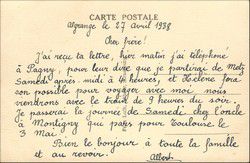 CARTE POSTALE
Algrange le 27 avril 1938
Cher frère!
J'ai reçu ta lettre, hier matin j'ai téléphoné
à Pagny, pour leur dire que je partirai de Metz
Samedi après-midi à 4 heures, et Hélène fera
son possible pour voyager avec moi nous
viendrons avec le train de 9 heures du soir.
Je passerai la journée de Samedi chez l'oncle
à Montigny que pars pour Toulouse le
3 Mai.
Bien le bonjour à toute la famille
et au revoir.
Albert